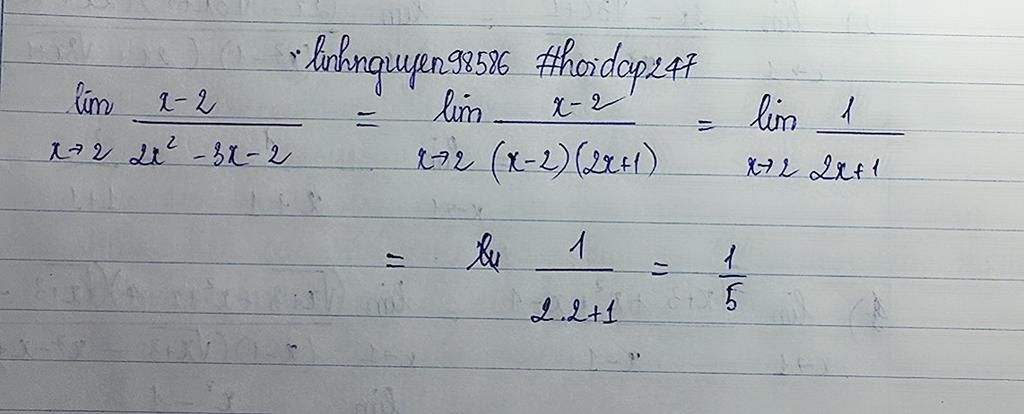 linhnguyen98586 #hoidap247
lim x→2 (x-2)/(2x² -3x-2) = lim x→2 (x-2)/((x-2)(2x+1)) = lim x→2 1/(2x+1)
= 1/(2.2+1) = 1/5